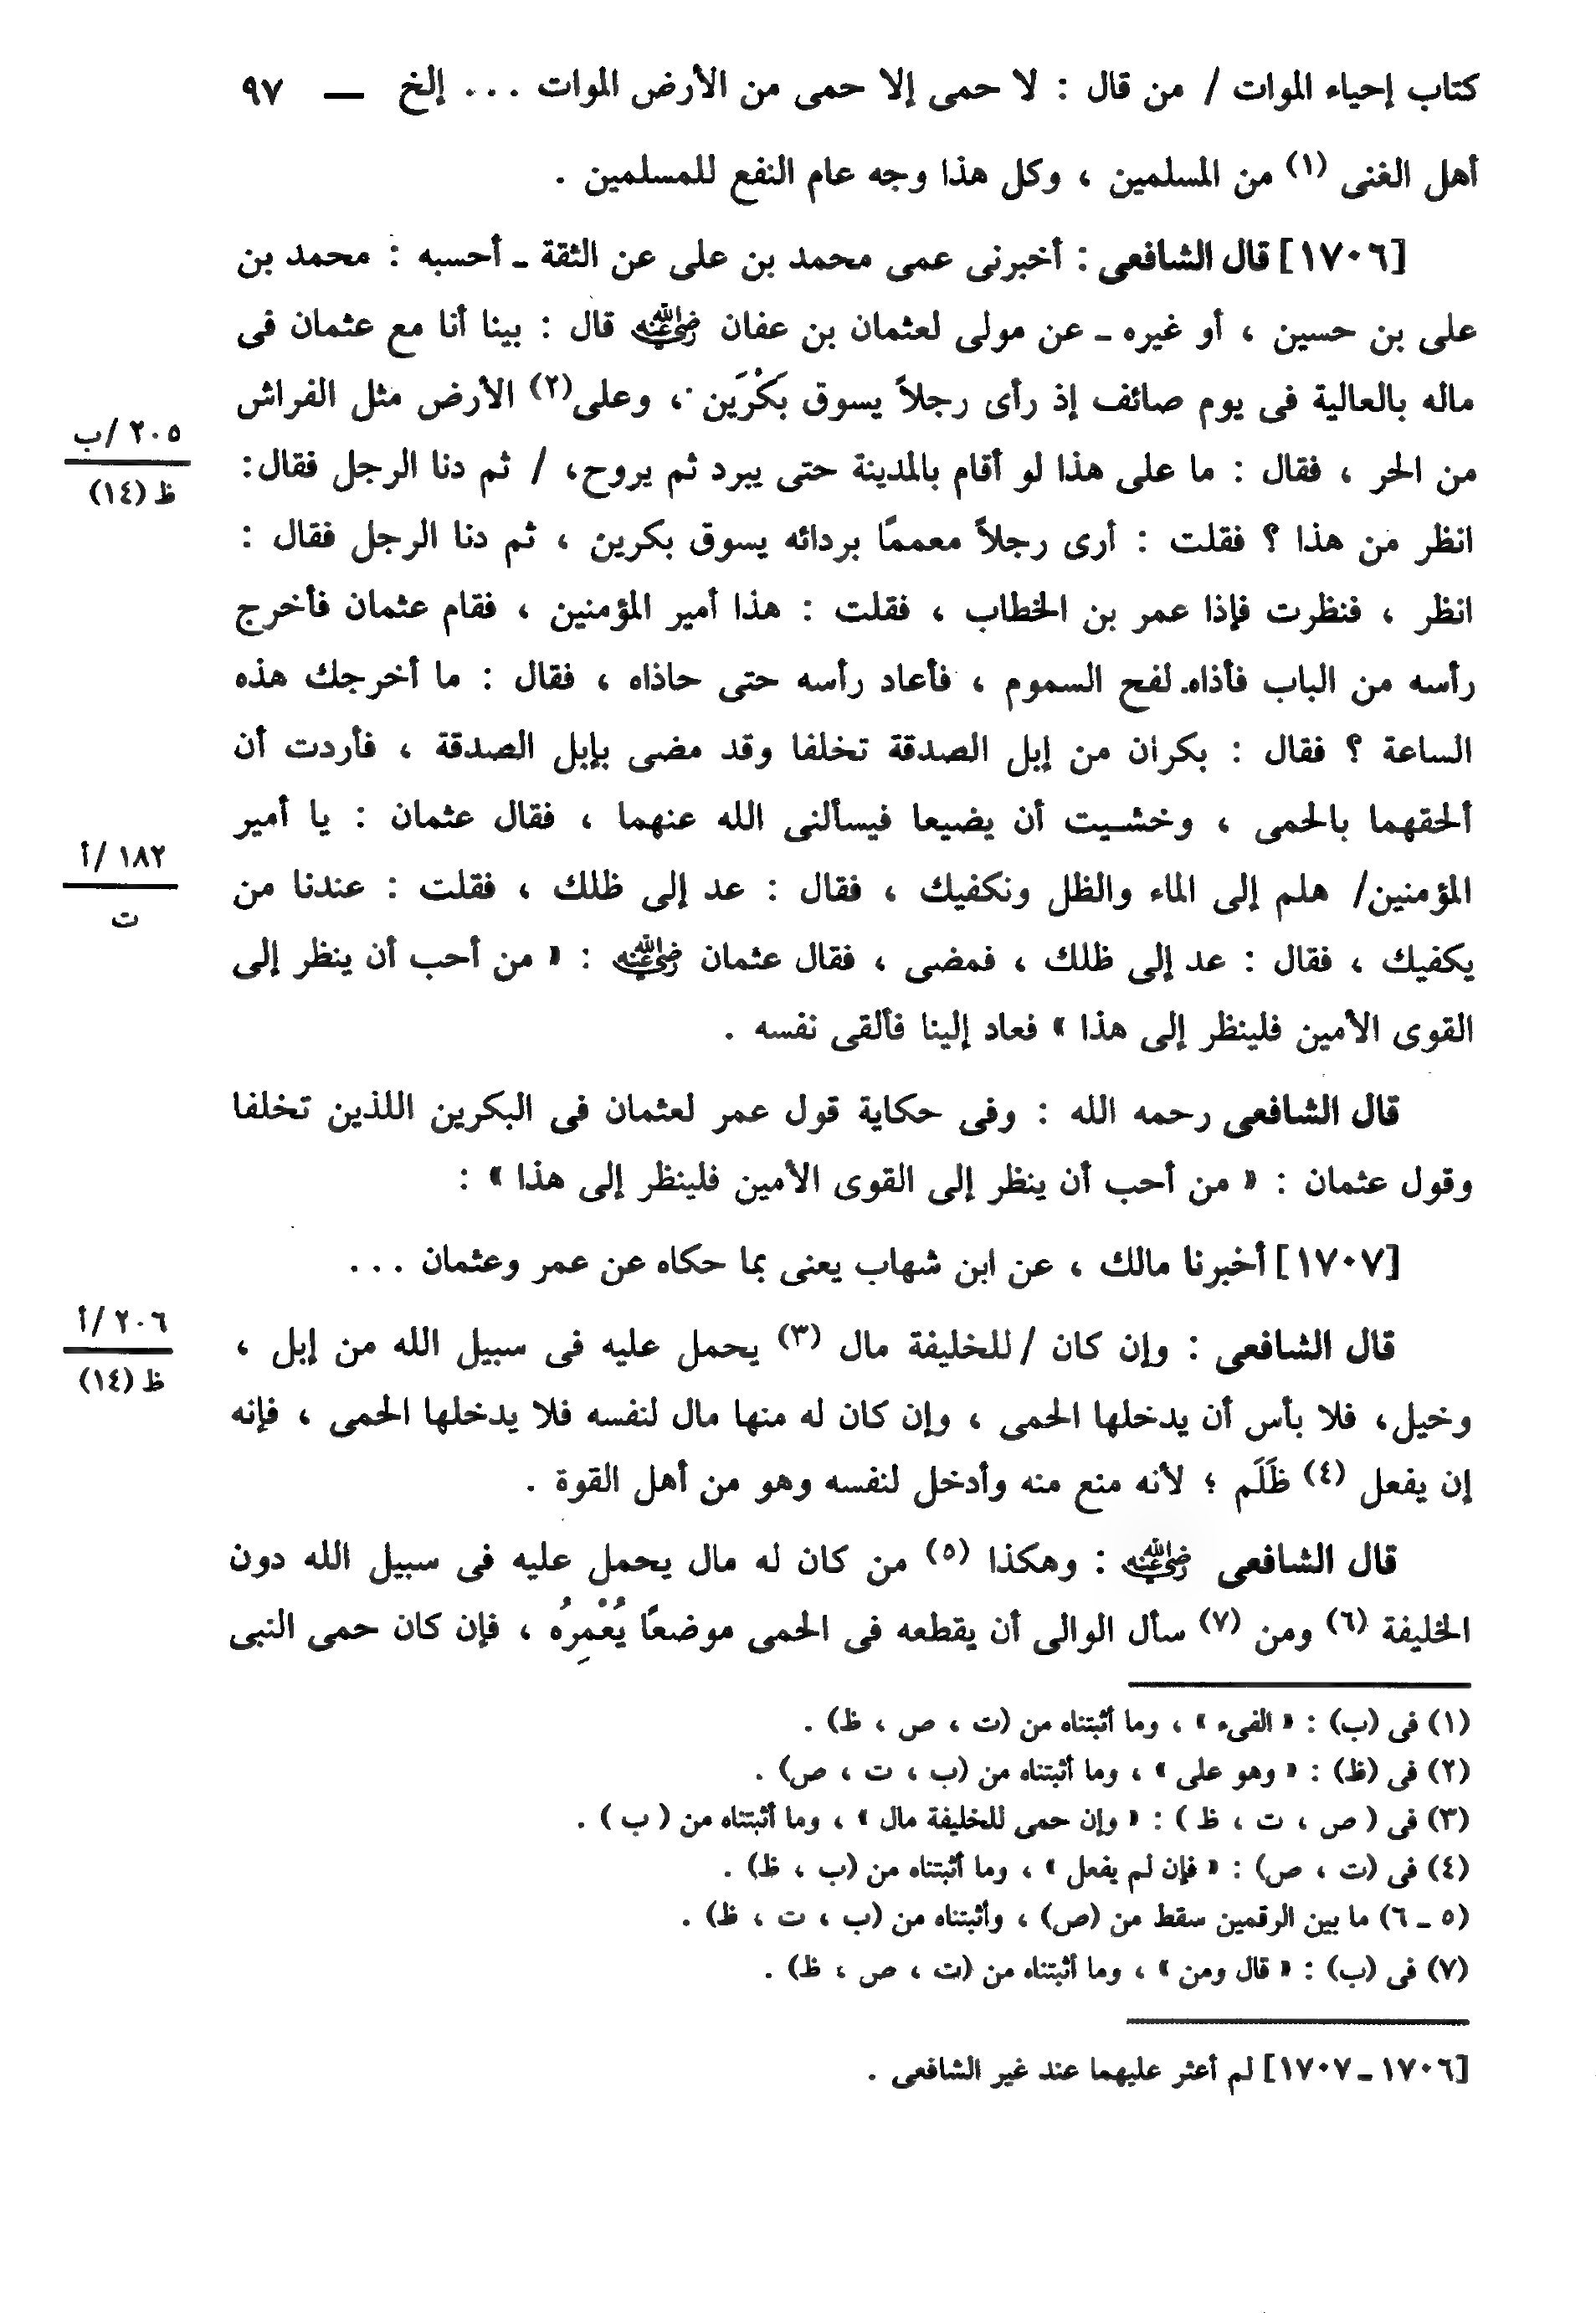 كتاب إحياء الموات / من قال : لا حمى إلا حمى من الأرض الموات ... إلخ — ٩٧
أهل الغنى (١) من المسلمين ، وكل هذا وجه عام النفع للمسلمين .
[١٧٠٦] قال الشافعى : أخبرنى عمى محمد بن على عن الثقة ـ أحسبه : محمد بن
على بن حسين ، أو غيره ـ عن مولى لعثمان بن عفان رضي الله عنه قال : بينا أنا مع عثمان فى
ماله بالعالية فى يوم صائف إذ رأى رجلاً يسوق بَكْرَين ، وعلى(٢) الأرض مثل الفراش
من الحر ، فقال : ما على هذا لو أقام بالمدينة حتى يبرد ثم يروح، / ثم دنا الرجل فقال:
٢٠٥ /ب
ظ (١٤)
انظر من هذا ؟ فقلت : أرى رجلاً معممًا بردائه يسوق بكرين ، ثم دنا الرجل فقال :
انظر ، فنظرت فإذا عمر بن الخطاب ، فقلت : هذا أمير المؤمنين ، فقام عثمان فأخرج
رأسه من الباب فأذاه لفح السموم ، فأعاد رأسه حتى حاذاه ، فقال : ما أخرجك هذه
الساعة ؟ فقال : بكران من إبل الصدقة تخلفا وقد مضى بإبل الصدقة ، فأردت أن
ألحقهما بالحمى ، وخشيت أن يضيعا فيسألنى الله عنهما ، فقال عثمان : يا أمير
المؤمنين/ هلم إلى الماء والظل ونكفيك ، فقال : عد إلى ظلك ، فقلت : عندنا من
١٨٢ /أ
ت
يكفيك ، فقال : عد إلى ظلك ، فمضى ، فقال عثمان رضي الله عنه : « من أحب أن ينظر إلى
القوى الأمين فلينظر إلى هذا » فعاد إلينا فألقى نفسه .
قال الشافعى رحمه الله : وفى حكاية قول عمر لعثمان فى البكرين اللذين تخلفا
وقول عثمان : « من أحب أن ينظر إلى القوى الأمين فلينظر إلى هذا » :
[١٧٠٧] أخبرنا مالك ، عن ابن شهاب يعنى بما حكاه عن عمر وعثمان ...
قال الشافعى : وإن كان /للخليفة مال (٣) يحمل عليه فى سبيل الله من إبل ،
٢٠٦ /أ
ظ (١٤)
وخيل، فلا بأس أن يدخلها الحمى ، وإن كان له منها مال لنفسه فلا يدخلها الحمى ، فإنه
إن يفعل (٤) ظَلَم ؛ لأنه منع منه وأدخل لنفسه وهو من أهل القوة .
قال الشافعى رضي الله عنه : وهكذا (٥) من كان له مال يحمل عليه فى سبيل الله دون
الخليفة (٦) ومن (٧) سأل الوالى أن يقطعه فى الحمى موضعًا يُعْمِرُه ، فإن كان حمى النبى
(١) فى (ب) : « الفىء » ، وما أثبتناه من (ت ، ص ، ظ) .
(٢) فى (ظ) : « وهو على » ، وما أثبتناه من (ب ، ت ، ص) .
(٣) فى ( ص ، ت ، ظ ) : « وإن حمى للخليفة مال » ، وما أثبتناه من ( ب ) .
(٤) فى (ت ، ص) : « فإن لم يفعل » ، وما أثبتناه من (ب ، ظ) .
(٥ ـ ٦) ما بين الرقمين سقط من (ص) ، وأثبتناه من (ب ، ت ، ظ) .
(٧) فى (ب) : « قال ومن » ، وما أثبتناه من (ت ، ص ، ظ) .
[١٧٠٦ ـ ١٧٠٧] لم أعثر عليهما عند غير الشافعى .